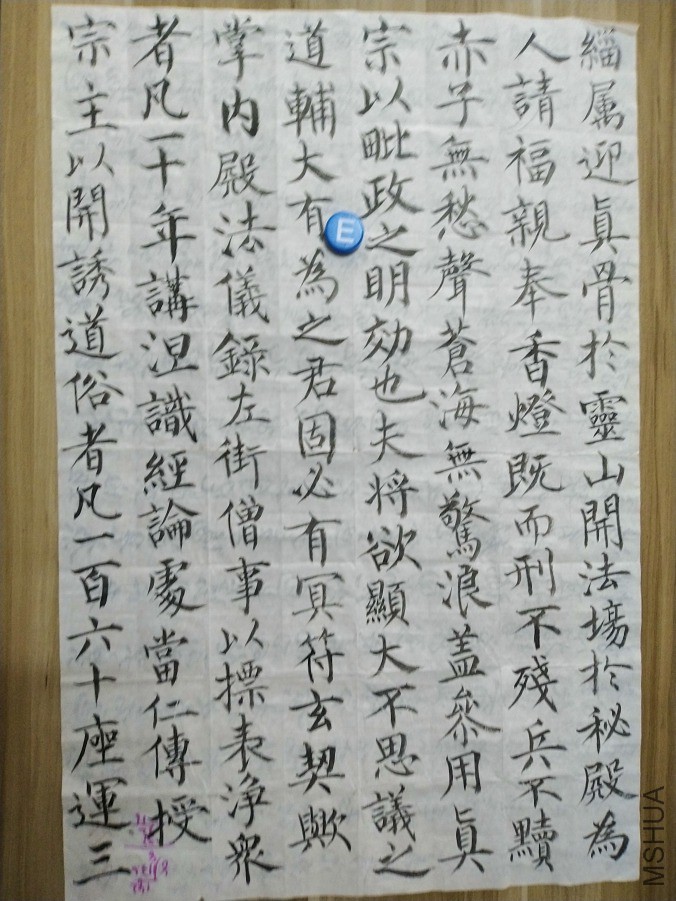 緇属迎眞骨於靈山開法場於秘殿為
人請福親奉香燈既而刑不殘兵不黷
赤子無愁聲蒼海無驚浪蓋叅用眞
宗以毗政之明効也夫将欲顯大不思議之
道輔大有為之君固必有冥符玄契歟
掌内殿法儀錄左街僧事以摽表淨衆
者凡一十年講涅識經論處當仁傳授
宗主以開誘道俗者凡一百六十座運三
E
MSHUA